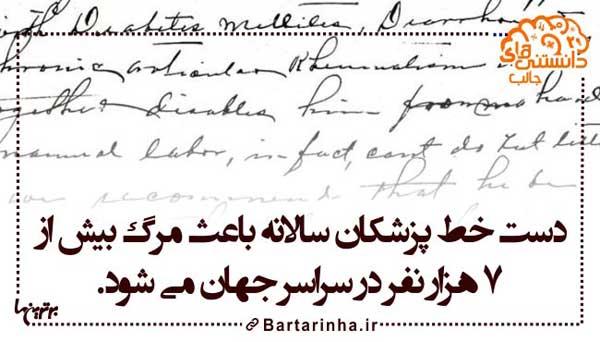 with Diabetes Mellites, Diarrhoea
chronic articular Rheumatism
together disables him from
manual labor, in fact, cant do but little
we recommend that he be
دانستنی های
جالب
دست خط پزشکان سالانه باعث مرگ بیش از
۷ هزار نفر در سراسر جهان می شود.
برترینها
Bartarinha.ir